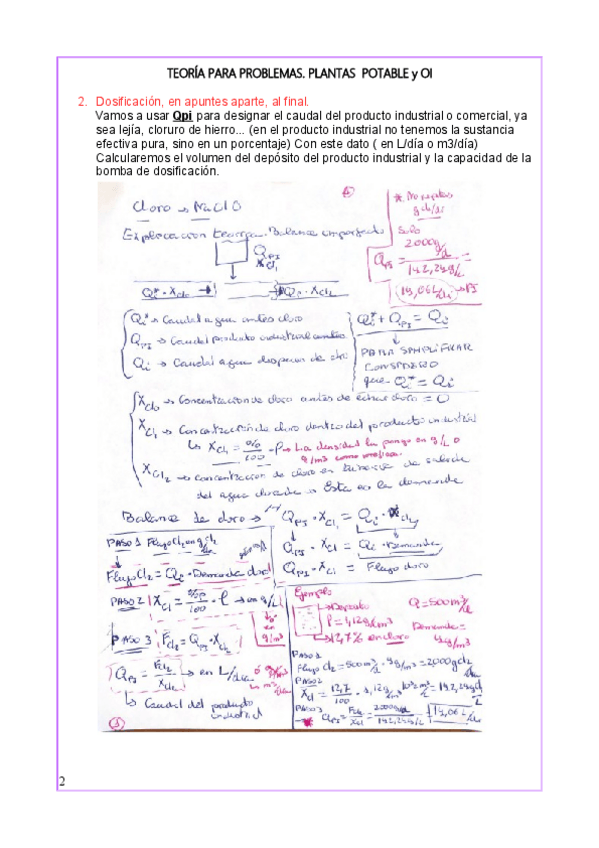 TEORÍA PARA PROBLEMAS. PLANTAS POTABLE y OI
2. Dosificación, en apuntes aparte, al final.
Vamos a usar Qpi para designar el caudal del producto industrial o comercial, ya
sea lejía, cloruro de hierro... (en el producto industrial no tenemos la sustancia
efectiva pura, sino en un porcentaje) Con este dato ( en L/día o m3/día)
Calcularemos el volumen del depósito del producto industrial y la capacidad de la
bomba de dosificación.
Cloro → NaClO
Explicación teórica. Balance
Solo
2000g
QPI
XCl1
Qi* · XCl0
Qi · XCl2
Qi* → Caudal agua antes cloro
QPI → Caudal producto industrial
Qi → Caudal agua despues de cloro
Qi* + QPI = Qi
PARA SIMPLIFICAR
CONSIDERO
que Qi* = Qi
XCl0 → Concentracion de cloro antes de echar cloro = 0
XCl1 → Concentracion de cloro dentro del producto industrial
↳ XCl1 = %/100 · ρ → La densidad la pongo en g/L o
g/m3
XCl2 → concentracion de cloro en tuberia de salida
del agua → Esta es la demanda
Balance de cloro → QPI · XCl1 = Qi · XCl2
QPI · XCl1 = Qi · Demanda
QPI · XCl1 = Flujo cloro
PASO 1 Flujo Cl2
Flujo Cl2 = Qi · Demanda de cl
PASO 2 XCl1 = %P/100 · ρ → en g/L
o en g/m3
PASO 3 FCl2 = QPI · XCl1
QPI = FCl2/XCl2 → en L/dia
↳ Caudal del producto
industrial
Ejemplo
→ Deposito
Q = 500m3/
→ 12,7% en cloro
Demanda =
PASO 1
Flujo Cl2 = 500m3/
= 2000g Cl2
PASO 2
XCl = 12,7/100
PASO 3
QPI = FCl2/XCl = 2000g/
= 14,06L/
2